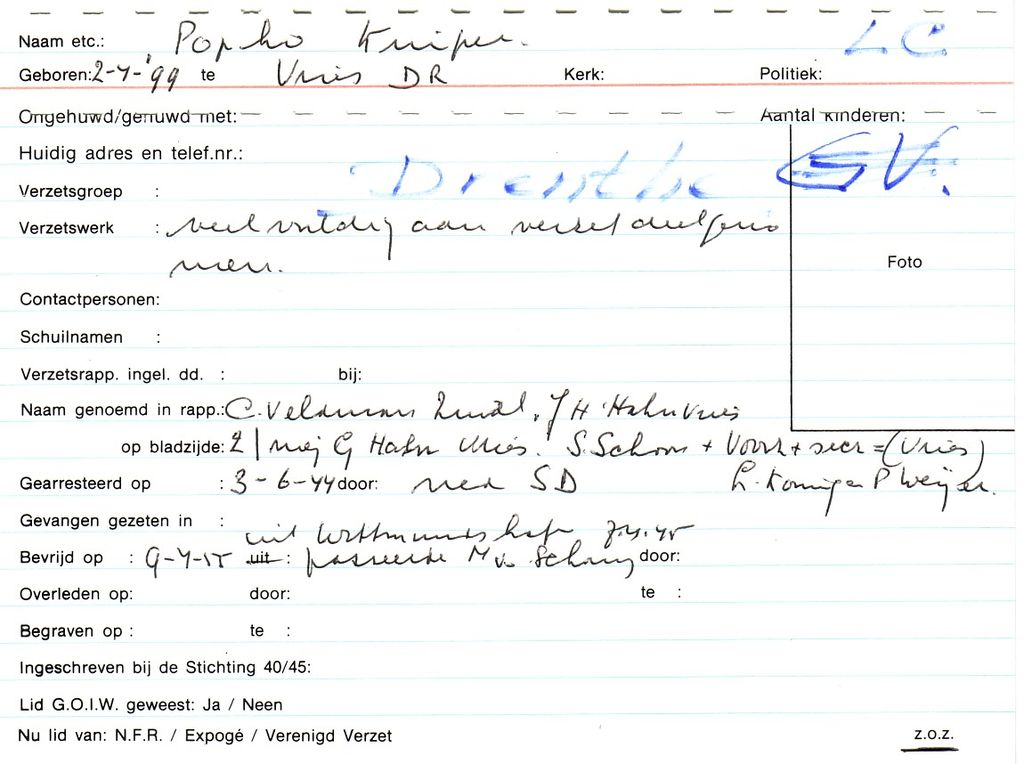 Naam etc.: Popko Kuiper. L C
Geboren: 2-4-'99 te Vries DR Kerk: Politiek:
Ongehuwd/gehuwd met: Aantal kinderen:
Huidig adres en telef.nr.:
Verzetsgroep : Drenthe GV.
Verzetswerk : veelvuldig aan verzet deelgeno
men.
Foto
Contactpersonen:
Schuilnamen :
Verzetsrapp. ingel. dd. : bij:
Naam genoemd in rapp.: C. Veldman J H Hahn Vries
op bladzijde: 2 / mej G Hahn Vries. S. Schoon + Voorz + secr = (Vries)
Gearresteerd op : 3-6-44 door: ned SD P Weijer.
Gevangen gezeten in : uit
Bevrijd op : 9-4-45 uit : passeerde door:
Overleden op: door: te :
Begraven op : te :
Ingeschreven bij de Stichting 40/45:
Lid G.O.I.W. geweest: Ja / Neen
Nu lid van: N.F.R. / Expogé / Verenigd Verzet z.o.z.